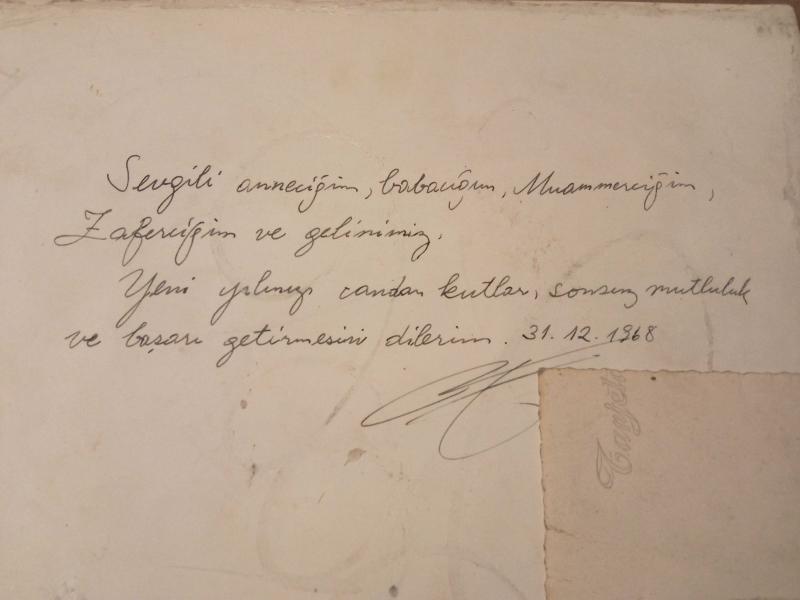 Sevgili anneciğim, babacığım, Muammerciğim,
Zaferciğim ve gelinimiz.
Yeni yılınızı candan kutlar, sonsuz mutluluk
ve başarı getirmesini dilerim. 31.12.1968